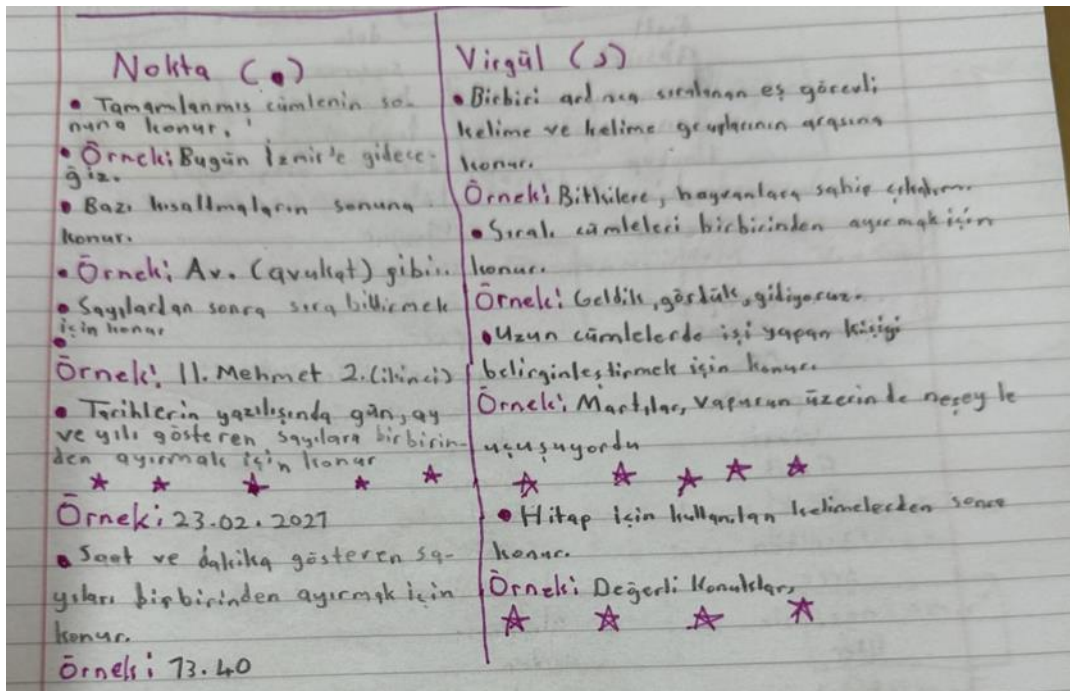 Nokta (.)
• Tamamlanmış cümlenin so-
nuna konur.
• Örnek: Bugün İzmir'e gidece-
ğiz.
• Bazı kısaltmaların sonuna
konur.
• Örnek: Av. (avukat) gibi.
• Sayılardan sonra sıra bildirmek
için konar
•
Örnek: II. Mehmet 2. (ikinci)
• Tarihlerin yazılışında gün, ay
ve yılı gösteren sayıları birbirin-
den ayırmak için konur
Örnek: 23.02.2021
• Saat ve dakika gösteren sa-
yıları birbirinden ayırmak için
konur.
Örnek: 13.40
Virgül (,)
• Birbiri ardınca sıralanan eş görevli
kelime ve kelime gruplarının arasına
konur.
Örnek: Bitkilere, hayvanlara sahip çıkalım.
• Sıralı cümleleri birbirinden ayırmak için
konur.
Örnek: Geldik, gördük, gidiyoruz.
• Uzun cümlelerde işi yapan kişiyi
belirginleştirmek için konur.
Örnek: Martılar, vapurun üzerinde neşeyle
uçuşuyordu
• Hitap için kullanılan kelimelerden sonra
konur.
Örnek: Değerli Konuklar,